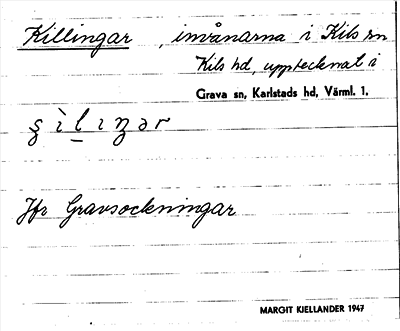 Killingar, invånarna i Kils sn
Kils hd, upptecknat i
Grava sn, Karlstads hd, Värml. 1.
Jfr Gravsockningar
MARGIT KIELLANDER 1947